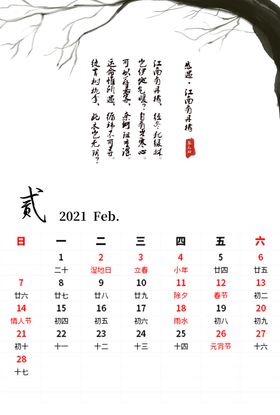 感遇·江南有丹橘
张九龄
江南有丹橘，经冬犹绿林。
岂伊地气暖？自有岁寒心。
可以荐嘉客，奈何阻重深。
运命惟所遇，循环不可寻。
徒言树桃李，此木岂无阴？
贰 2021 Feb.
日 一 二 三 四 五 六
1 2 3 4 5 6
二十 湿地日 立春 小年 廿四 廿五
7 8 9 10 11 12 13
廿六 廿七 廿八 廿九 除夕 春节 初二
14 15 16 17 18 19 20
情人节 初四 初五 初六 雨水 初八 初九
21 22 23 24 25 26 27
初十 十一 十二 十三 十四 元宵节 十六
28
十七